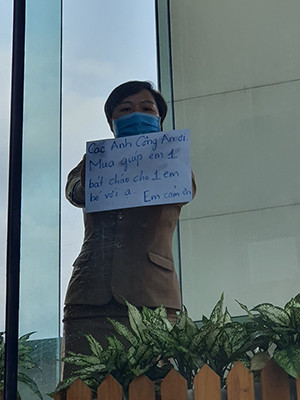 Các Anh Công An ơi.
Mua giúp em 1
bát cháo cho 1 em
bé với ạ. Em cảm ơn